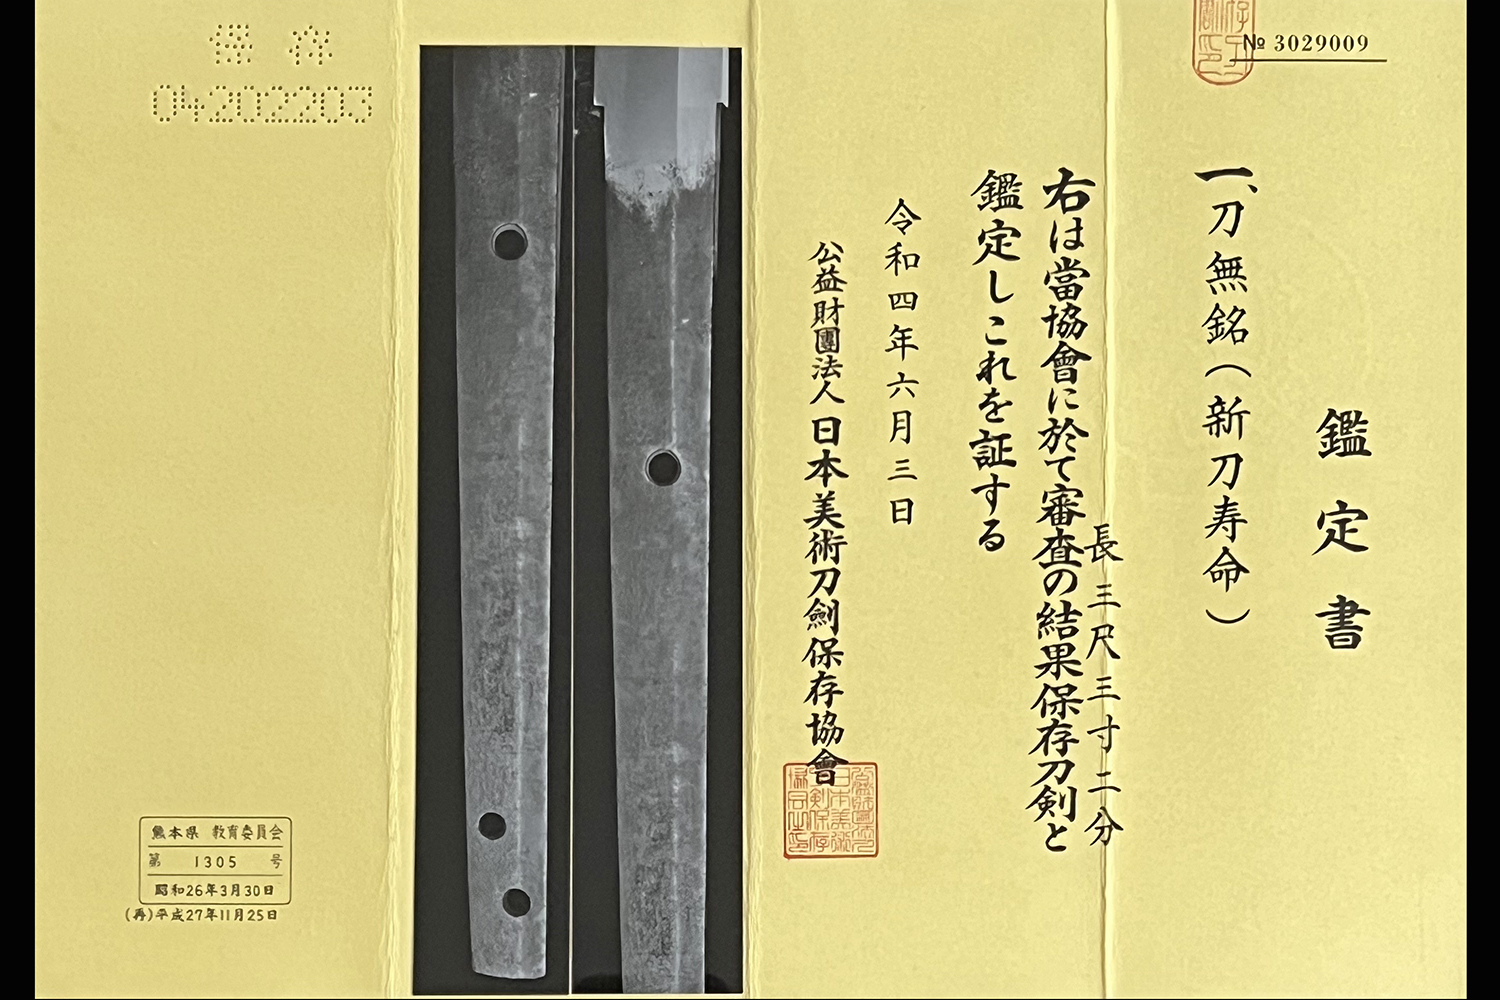 № 3029009
鑑定書
一、刀無銘(新刀寿命)
長三尺三寸二分
右は當協會に於て審査の結果保存刀剣と
鑑定しこれを証する
令和四年六月三日
公益財團法人日本美術刀劍保存協會
保存
04202203
熊本県 教育委員会
第 1305 号
昭和26年3月30日
(再)平成27年11月25日